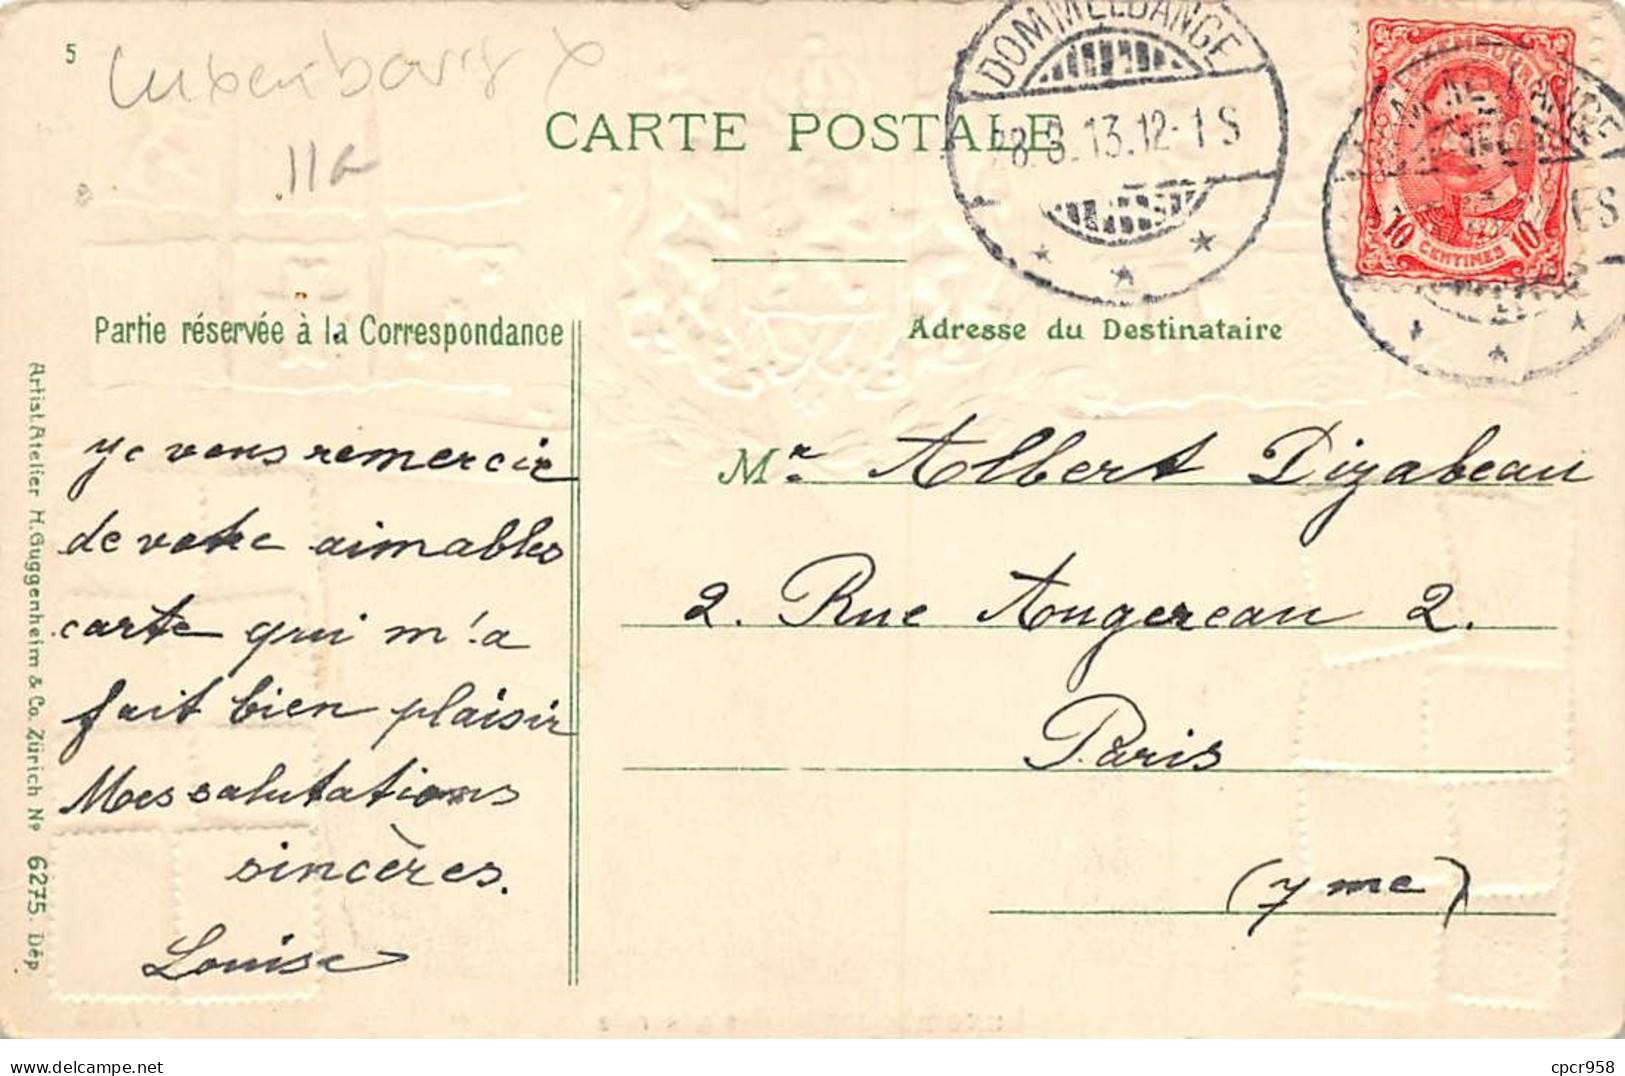 5
Luxembourg
11a
CARTE POSTALE
DOMMELDANGE
28.8.13.12-1 S
10 CENTIMES 10
Partie réservée à la Correspondance
Adresse du Destinataire
Je vous remercie
de votre aimables
carte qui m'a
fait bien plaisir
Mes salutations
sincères.
Louise
Mr. Albert Dizabeau
2. Rue Augereau 2.
Paris
(7me)
Artist. Atelier H. Guggenheim & Co. Zürich No 6275. Dép
delcampe.net
cpcr958